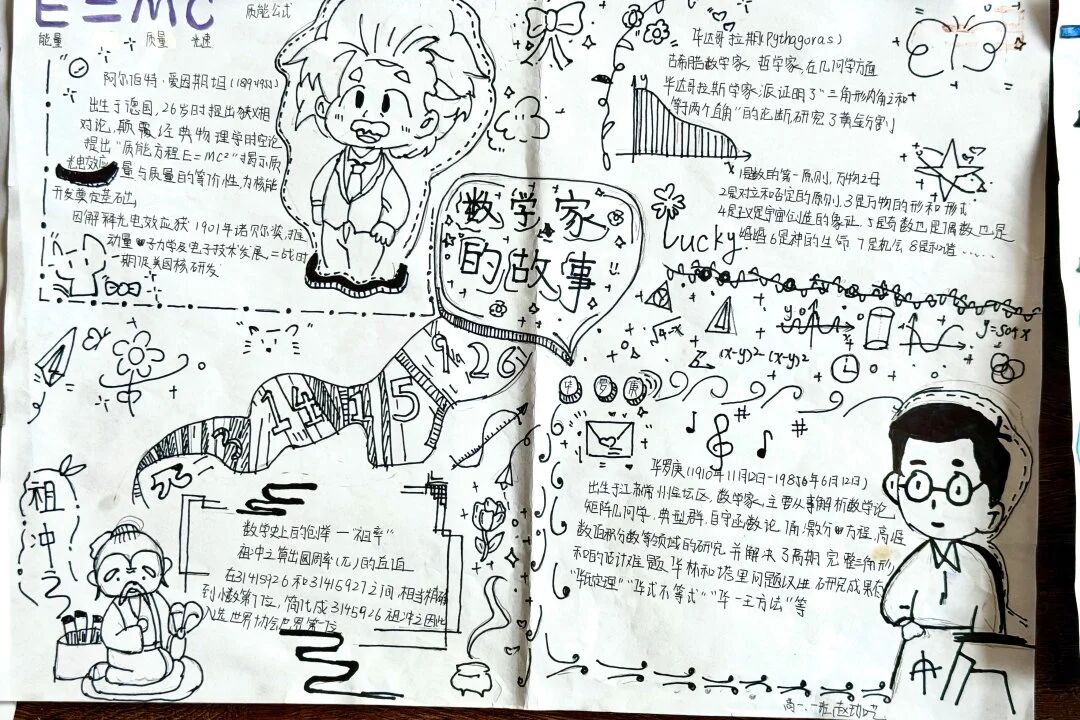 E=MC
质能公式
能量 质量 光速
阿尔伯特·爱因斯坦
出生于德国,26岁时提出狭义相
对论,颠覆经典物理学时空论
提出"质能方程E=mc²"揭示质
光电效应
量与质量的等价性,为核能
开发奠定基石出
因解释光电效应获1901年诺贝尔奖,推
动量子力学及电子技术发展,二战时
期促美国核研发
数学家
的故事
毕达哥拉斯(Pythagoras)
古希腊数学家、哲学家,在几何学方面
毕达哥拉斯学家派证明了"三角形内角之和
等两个直角"的论断,研究了黄金分割
1是数的第一原则,万物之母
2是对立和否定的原则,3是万物的形和形式
4是正义是宇宙创造的象征,5是奇数也是偶数也是
婚姻6是神的生命 7是机会 8是和谐......
Lucky.
√4-x
(x-y)² (x-y)²
1415
926
华罗庚
祖冲之
数学史上的创举—"祖率"
祖冲之算出圆周率(π)的真值
在31415926和31415927之间,相当精确
到小数第7位,简化成3145926 祖冲之因此
入选世界协会世界第一位
华罗庚(1910年11月12日-1985年6月12日)
出生于江苏常州金坛区,数学家,主要从事解析数论
矩阵几何学、典型群、自守函数论、偏微分方程、高维
数值积分数等领域的研究,并解决了高斯完整三角形
和的估计难题,华林和塔里问题改进,研究成果有
"华氏定理""华氏不等式""华—王方法"等
高一、一班